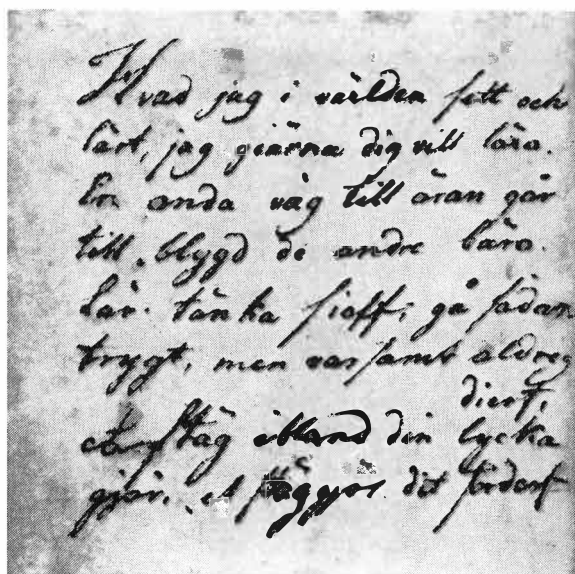 Hvad jag i världen sett och
lärt, jag giärna dig vill lära.
En enda väg till äran går
till blygd de andre bära.
Lär tänka sielf; gå sedan
trygt, men varsamt aldreg
dierf,
et stäg ibland din lycka
gjör, et dit förderf